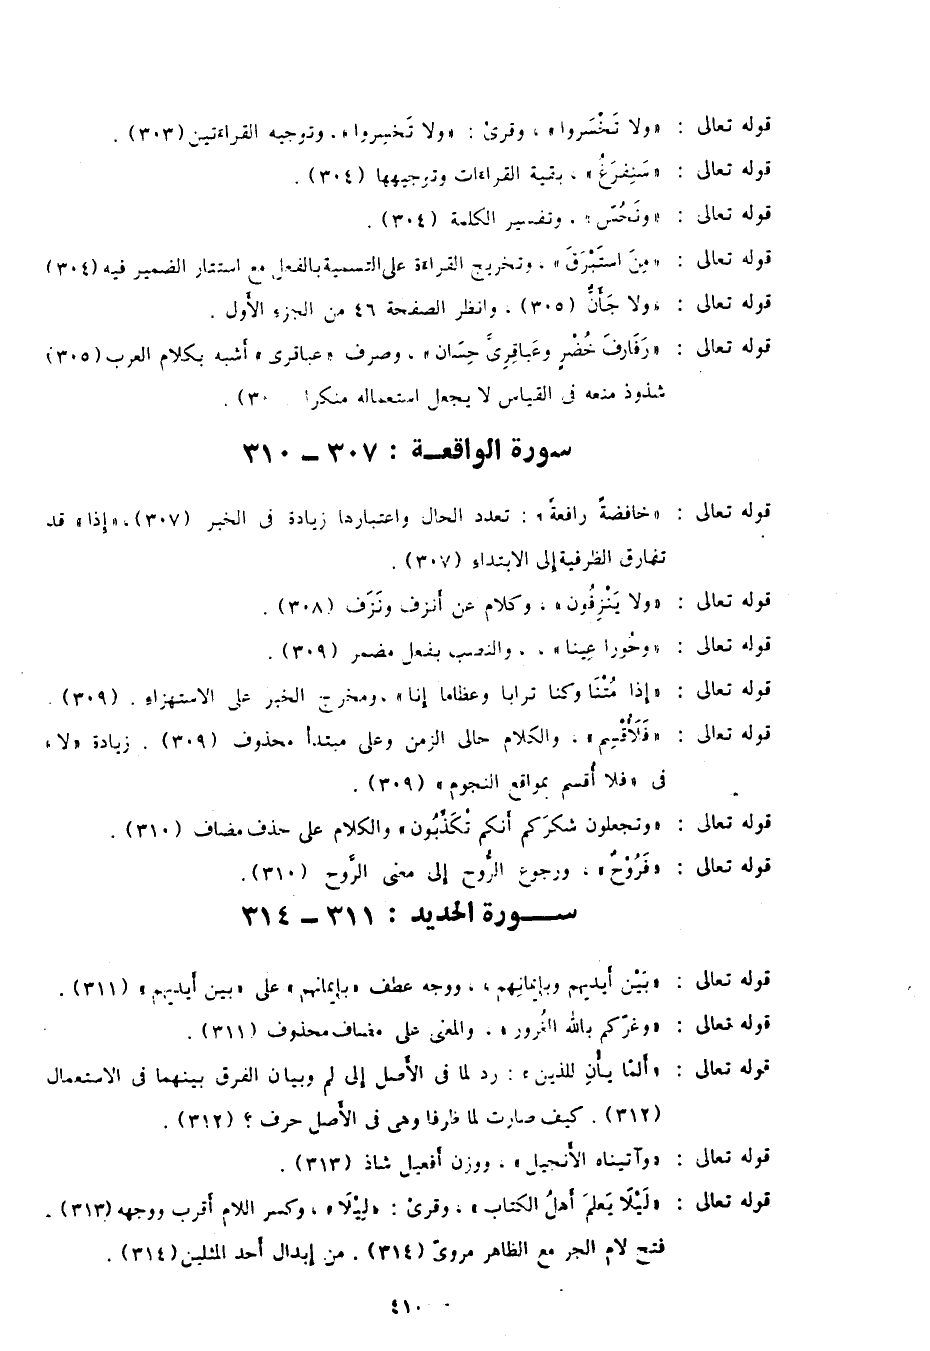 قوله تعالى : «ولا تَخْسَروا» ، وقرئ : «ولا تَخسِروا» . وتوجيه القراءتين (٣٠٣) .
قوله تعالى : «سَنِفرَغُ» ، بقية القراءات وتوجيهها (٣٠٤) .
قوله تعالى : «ونَحُسّ» . وتفسير الكلمة (٣٠٤) .
قوله تعالى : «مِنَ استَبْرَقَ» ، وتخريج القراءة على التسمية بالفعل مع استتار الضمير فيه (٣٠٤)
قوله تعالى : «ولا جَأَنٌّ (٣٠٥) . وانظر الصفحة ٤٦ من الجزء الأول .
قوله تعالى : «رَفَارفَ خُضْرٍ وعَباقِرِىَّ حِسَان» ، وصرف «عباقرى» أشبه بكلام العرب (٣٠٥)
شذوذ منعه فى القياس لا يجعل استعماله منكرا ٣٠) .
سورة الواقعة : ٣٠٧ – ٣١٠
قوله تعالى : «خافضةً رافعةً» : تعدد الحال واعتبارها زيادة فى الخبر (٣٠٧) ، «إذا» قد
تفارق الظرفية إلى الابتداء (٣٠٧) .
قوله تعالى : «ولا يَنْزِفُون» ، وكلام عن أنزف ونَزَف (٣٠٨) .
قوله تعالى : «وحُورا عِينا» . . والنصب بفعل مضمر (٣٠٩) .
قوله تعالى : «إذا مُتْنَا وكنا ترابا وعظاما إنا» . ومخرج الخبر على الاستهزاء . (٣٠٩) .
قوله تعالى : «فَلَأُقْسِم» ، والكلام حالى الزمن وعلى مبتدأ محذوف (٣٠٩) . زيادة «لا»
فى «فلا أُقسم بمواقع النجوم» (٣٠٩) .
قوله تعالى : «وتجعلون شكرَكم أنكم تْكَذِّبُون» والكلام على حذف مضاف (٣١٠) .
قوله تعالى : «فَرُوْحٌ» ، ورجوع الرُّوح إلى معنى الرَّوح (٣١٠) .
ســورة الحديد : ٣١١ – ٣١٤
قوله تعالى : «بَيْن أيديهم وبإيمانِهم» ، ووجه عطف «بإيمانهم» على «بين أيديهم» (٣١١) .
قوله تعالى : «وغرّكم بالله الغُرور» . والمعنى على مضاف محذوف (٣١١) .
قوله تعالى : «ألمّا يأْنِ للذين» : رد لما فى الأصل إلى لم وبيان الفرق بينهما فى الاستعمال
(٣١٢) . كيف صارت لما ظرفا وهى فى الأصل حرف ؟ (٣١٢) .
قوله تعالى : «وآتيناه الأنجيل» ، ووزن أفعيل شاذ (٣١٣) .
قوله تعالى : «لَيْلَا يَعلمَ أهلُ الكتاب» ، وقرئ : «لِيْلَا» ، وكسر اللام أقرب ووجهه (٣١٣) .
فتح لام الجر مع الظاهر مروىّ (٣١٤) . من إبدال أحد المثلين (٣١٤) .
٤١٠